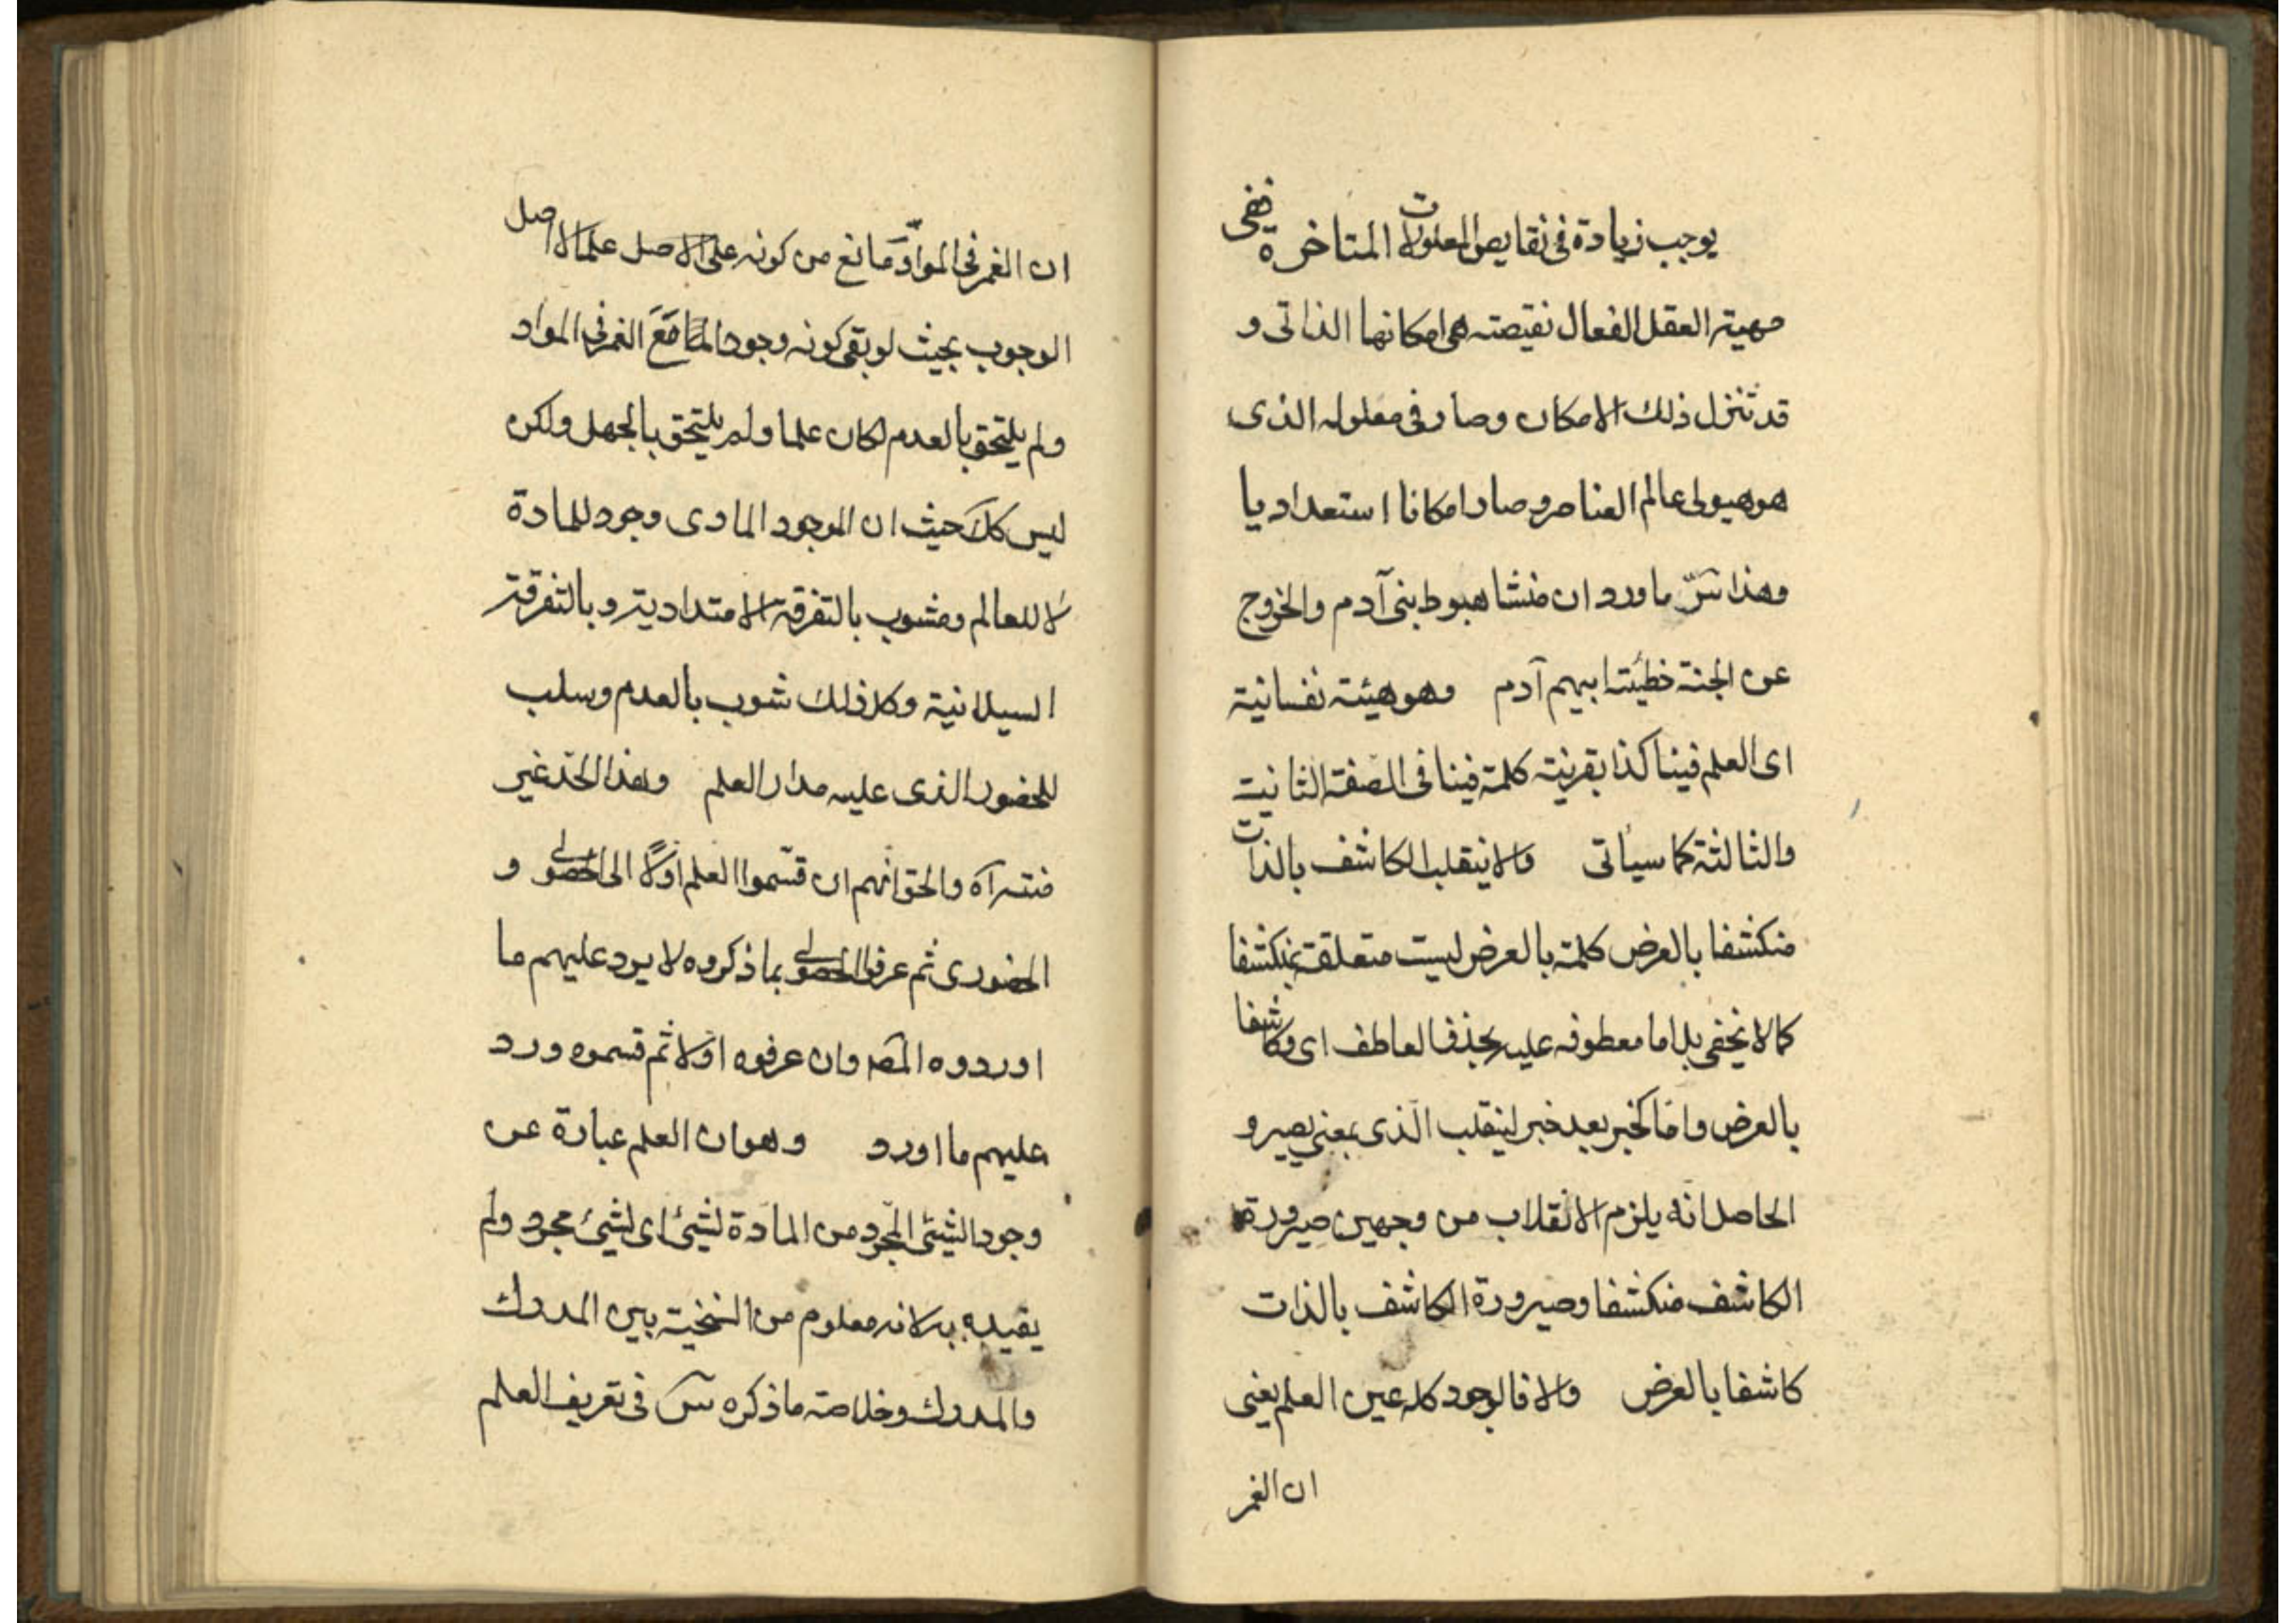 يوجب زيادة فى نقايص المعلولات المتاخرة ففى
مهية العقل الفعال نقيصته هى امكانها الذاتى و
قد تنزل ذلك الامكان وصار فى معلوله الذى
هو هيولى عالم العناصر وصار امكانا استعداديا
وهذا سرّ ما ورد ان منشا هبوط بنى آدم والخروج
عن الجنة خطيئة ابيهم آدم وهو هيئة نفسانية
اى العلم فينا كذا بقرينة كلمة فينا فى الصفة الثانية
والثالثة كما سيأتى والا نيقلب الكاشف بالذات
منكشفا بالعرض كلمة بالعرض ليست متعلقة بمنكشفا
كما لا يخفى بل اما معطوفه عليه بحذف العاطف اى وكاشفا
بالعرض واما كخبر بعد خبر لينقلب الذى بمعنى يصير و
الحاصل انه يلزم الانقلاب من وجهين صيرورة
الكاشف منكشفا وصيرورة الكاشف بالذات
كاشفا بالعرض والا فالوجود كله عين العلم يعنى
ان الغمر
ان الغمر فى الموادّ مانع من كونه على الاصل علما لاصل
الوجوب بحيث لو بقى كونه وجودا لما مع الغمر فى المواد
ولم يلتحق بالعدم لكان علما ولم يلتحق بالجهل ولكن
ليس كك حيث ان الموجود المادى وجود للمادة
لا للعالم ومشوب بالتفرقة الامتدادية وبالتفرقة
السيلانية وكل ذلك شوب بالعدم وسلب
للحضور الذى عليه مدار العلم وهذا الحد غير
منته آه والحق انهم ان قسّموا العلم اولًا الى الحصولى و
الحضورى ثم عرفوا الحصولى بما ذكروه لا يرد عليهم ما
اوردوه المصـ وان عرفوه اولا ثم قسموه ورد
عليهم ما اورد وهو ان العلم عبارة عن
وجود الشيئ المجرد من المادة لشيئ اى لشيئ مجرد ولم
يقيده به لانه معلوم من السنخية بين المدرك
والمدرك وخلاصة ما ذكره س فى تعريف العلم